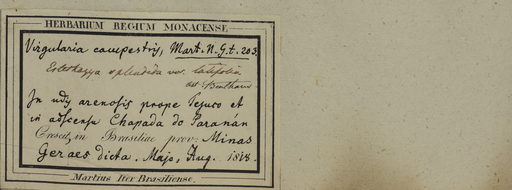 HERBARIUM REGIUM MONACENSE.
Virgularia campestris, Mart. N. G. t. 203.
Esterhazya splendida var. latifolia
Bentham
In udis arenosis prope Tejuco et
in adscensu Chapada do Paranán
Crescit in Brasiliae prov: Minas
Geraes dicta. Majo, Aug. 1818.
Martius Iter Brasiliense.